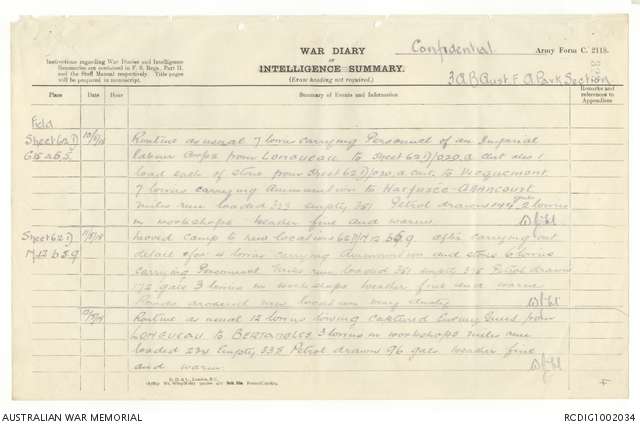 WAR DIARY
or
INTELLIGENCE SUMMARY.
(Erase heading not required.)
Confidential
Army Form C. 2118.
Instructions regarding War Diaries and Intelligence
Summaries are contained in F. S. Regs., Part II.
and the Staff Manual respectively. Title pages
will be prepared in manuscript.
3 A B Aust F A Park Section
Place
Date
Hour
Summary of Events and Information
Remarks and
references to
Appendices
Field
Sheet 62D
Routine as usual 7 lorries carrying Personnel of an Imperial
Labour Corps from LONGUEAU to Sheet 62D/O20.a cent also 1
load each of stone from Sheet 62D/O20.a cent to
7 lorries carrying Ammunition to
miles run loaded 323 empty 361 Petrol drawn 144 gals 2 lorries
in workshops Weather fine and warm
Sheet 62D
Moved camp to new location 62D/ after carrying out
detail 4 lorries carrying Ammunition and stone 6 lorries
carrying Personnel Miles run loaded empty Petrol drawn
172 gals 3 lorries in workshops Weather fine and warm
Roads around new location very dusty
Routine as usual 12 lorries towing captured Enemy Guns from
LONGUEAU to BERTANGLES 3 lorries in workshops miles run
loaded 234 Empty 335 Petrol drawn 96 gals Weather fine
and warm
AUSTRALIAN WAR MEMORIAL
RCDIG1002034